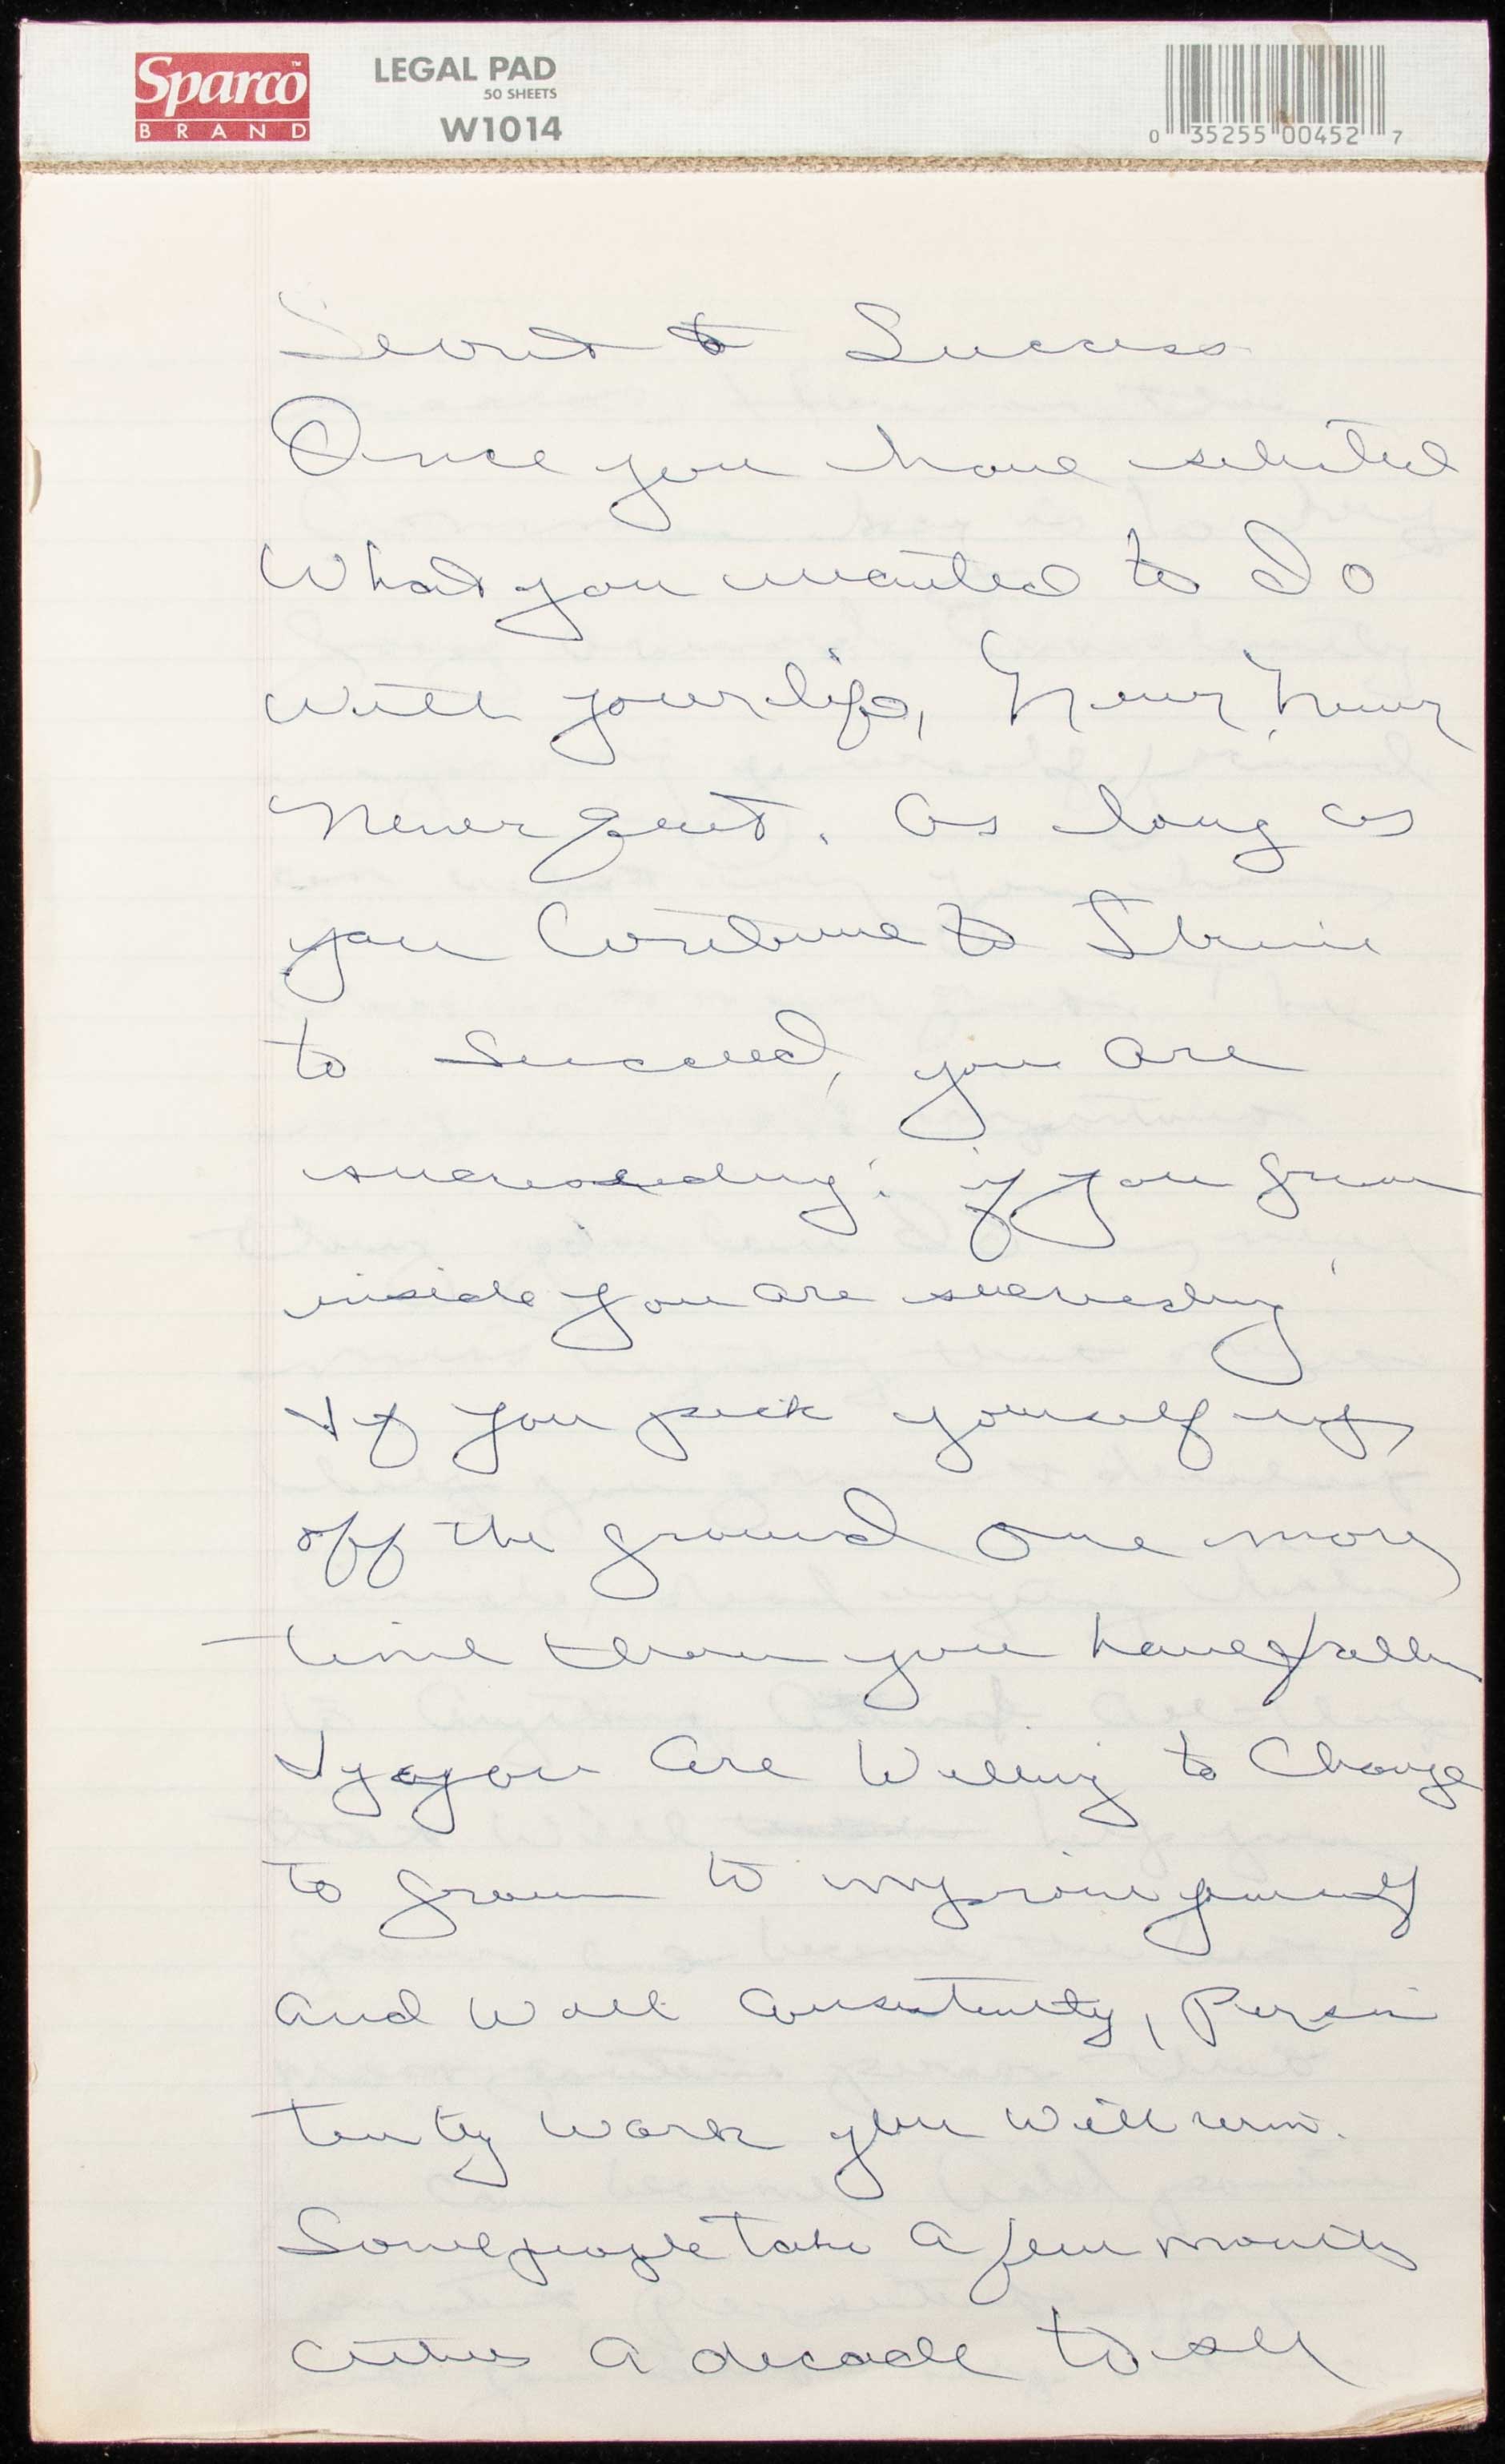 Sparco™
BRAND
LEGAL PAD
50 SHEETS
W1014
0 35255 00452 7
Secret to Success
Once you have selected
What you wanted to do
with your life, Never Never
Never Quit. As long as
you Continue to Strive
to Succeed, you are
succeeding; if you grow
inside you are succeeding
If you pick yourself up
off the ground one more
time than you have fallen
If you are Willing to Change
to grow to improve yourself
and work consistently, Persis
tently work you will win.
Some people take a few months
others a decade to